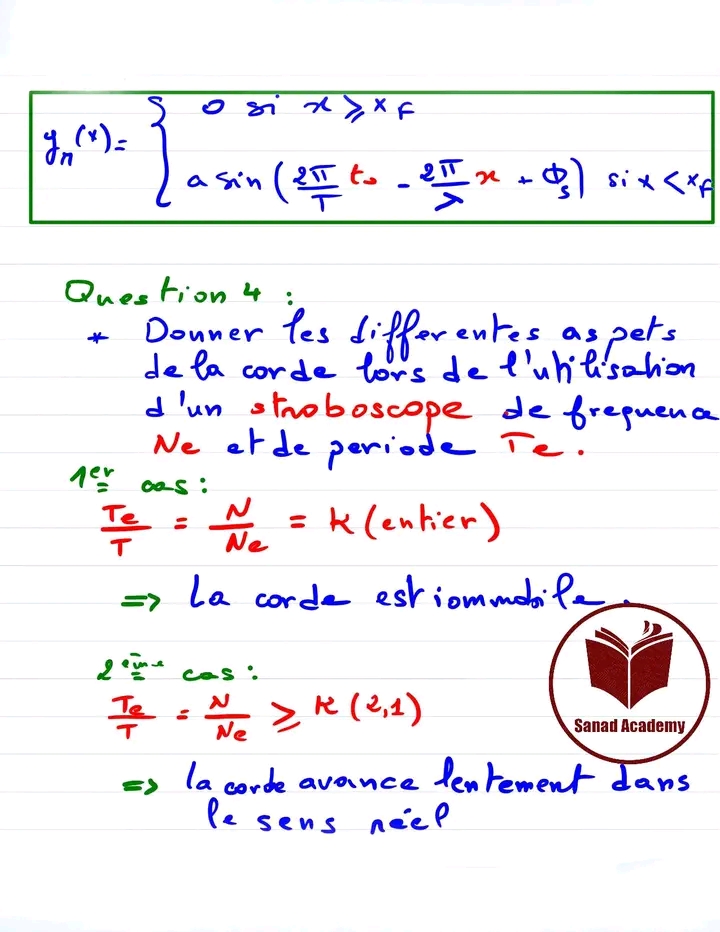 y_n(x) = { 0 si x ⩾ x_F
a sin ( 2π/T t₀ - 2π/λ x + Φ_s ) si x < x_F
Question 4 :
* Donner les differentes aspets
de la corde lors de l'utilisation
d'un stroboscope de frequence
Ne et de periode Te .
1er cas :
Te/T = N/Ne = K (entier)
=> La corde est iommobile .
2ème cas :
Te/T = N/Ne ⩾ K (2,1)
=> la corde avance lentement dans
le sens réel
Sanad Academy